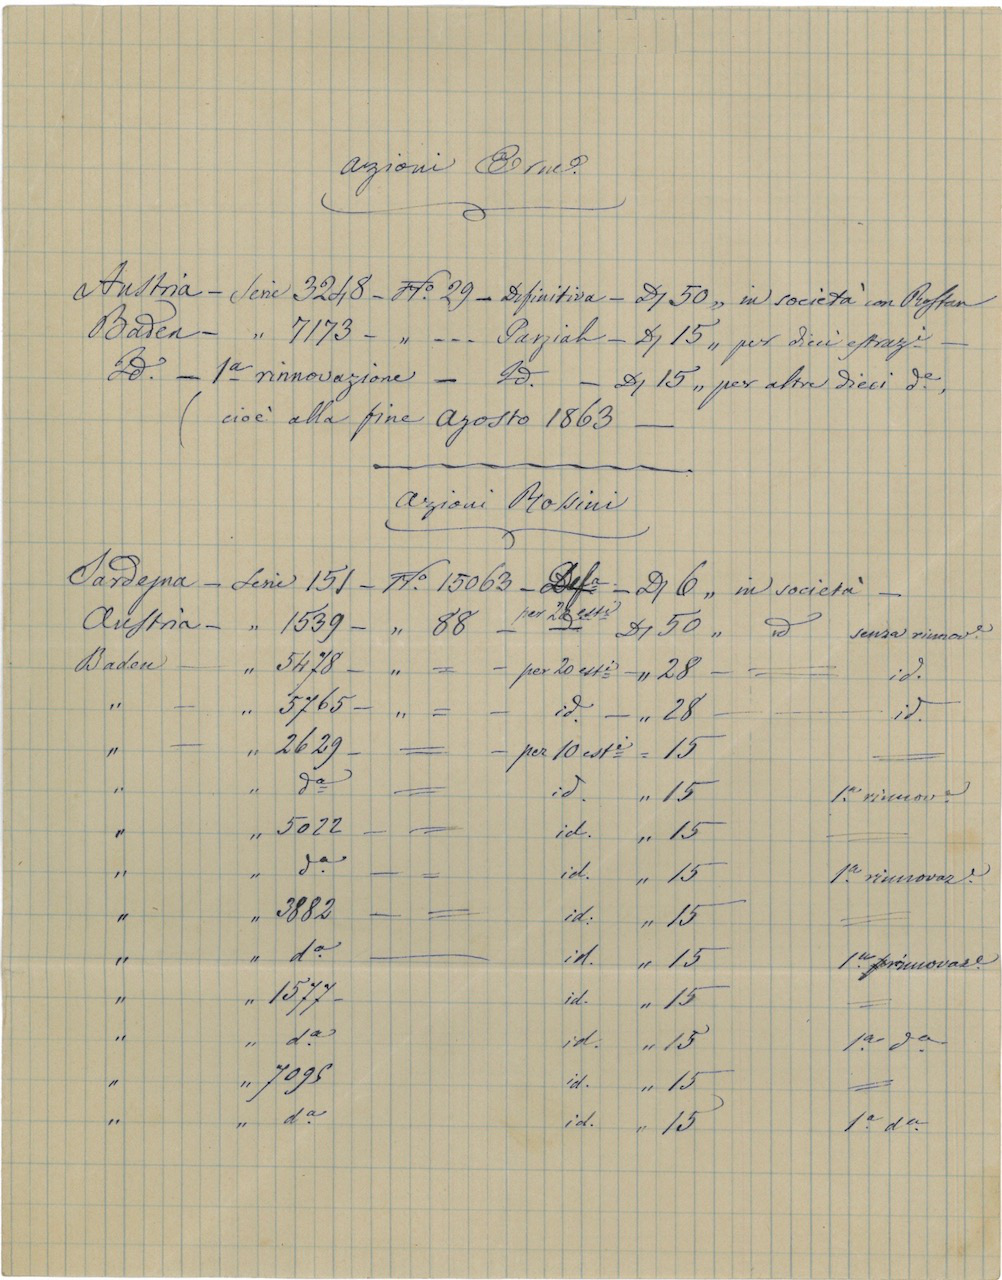 Azioni
Austria – Serie 3248 – No. 29 – Definitiva – D/ 50 „ in società con Rostan
Baden – „ 7173 – „ --- Parziale – D/ 15 „ per dieci estrazi —
Id. – 1a rinnovazione – Id. – D/ 15 „ per altre dieci de,
( cioè alla fine Agosto 1863 —
Azioni Rossini
Sardegna – Serie 151 – No. 15063 – Defa – D/ 6 „ in società –
per 20 esti
Austria – „ 1539 – „ 88 – D/ 50 „ id senza rinnove
Baden — „ 5478 – „ = – per 20 esti – „ 28 – == id.
„ — „ 5765 – „ = – id. – „ 28 – — id.
„ — „ 2629 – = – per 10 esti = 15 =
„ „ da = id. „ 15 1a rinnove
„ „ 5022 – = id. „ 15 =
„ „ da – = id. „ 15 1a rinnovaze
„ „ 3882 – = id. „ 15 =
„ „ da — id. „ 15 1a rinnovaze
„ „ 1577 – id. „ 15 =
„ „ da id. „ 15 1a da
„ „ 7095 id. „ 15 =
„ „ da id. „ 15 1a da